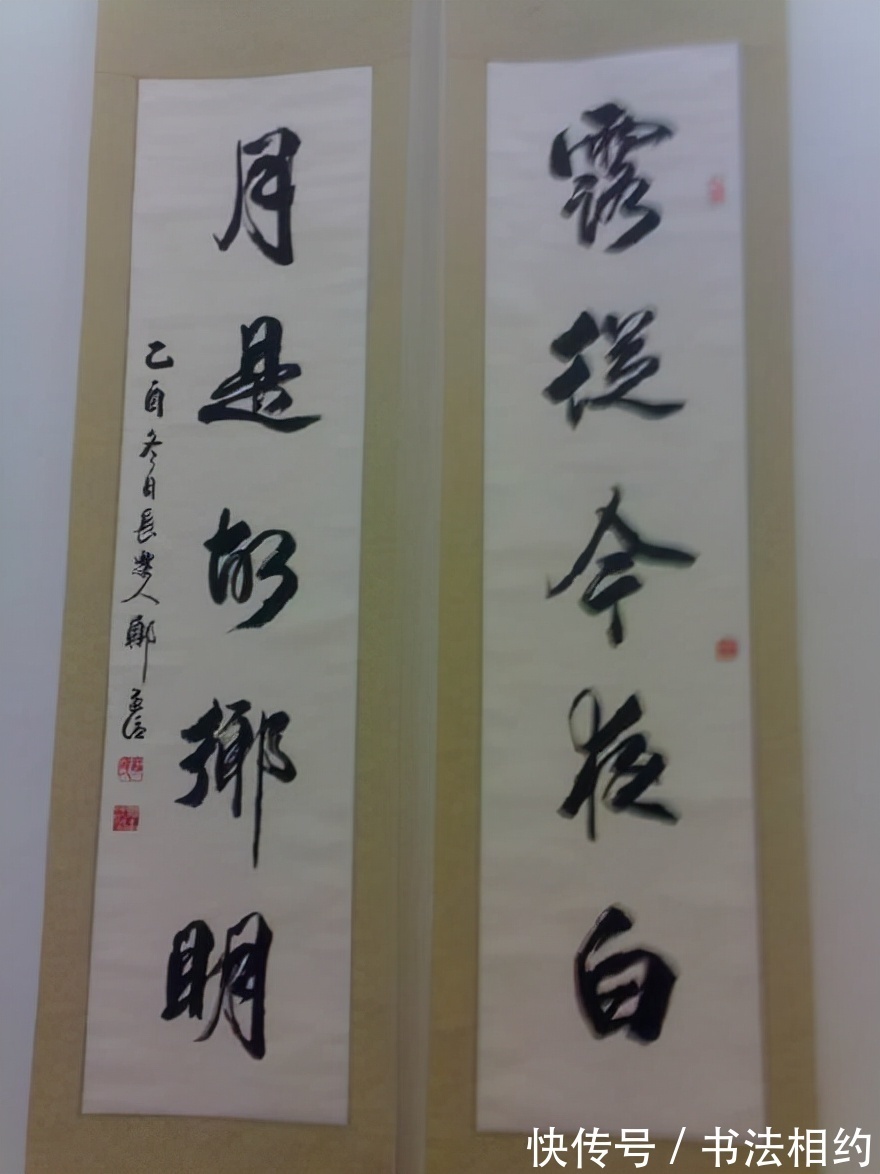 露從今夜白
月是故鄉明
乙酉冬日長樂人鄭
快传号 / 书法相约